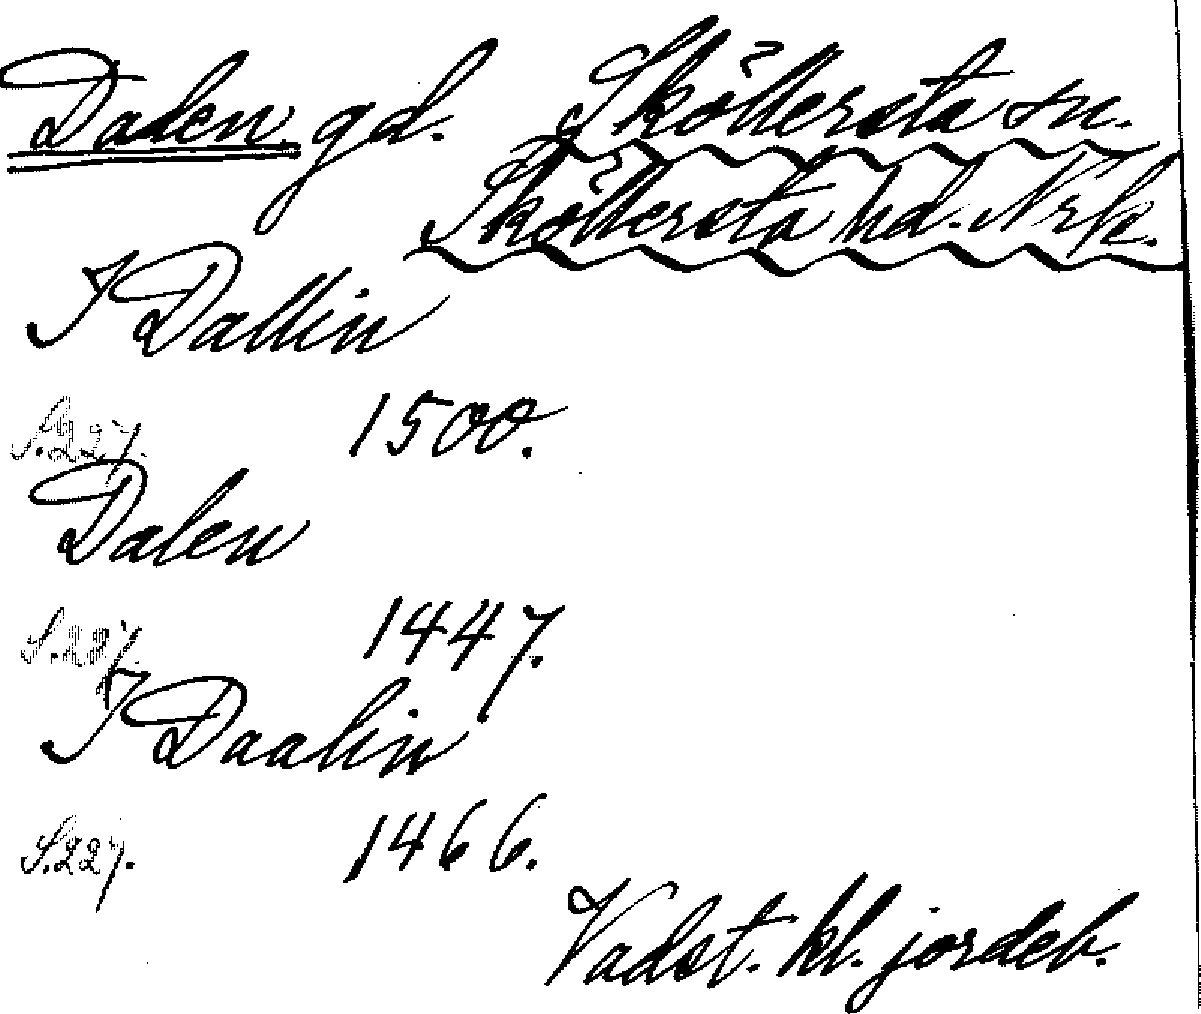 Dalen. gd. Sköllersta sn.
Sköllersta hd. Nrk.
I Dallin
S.227. 1500.
Dalen
S.227. 1447.
I Daalin
S.227. 1466.
Vadst. kl. jordeb.